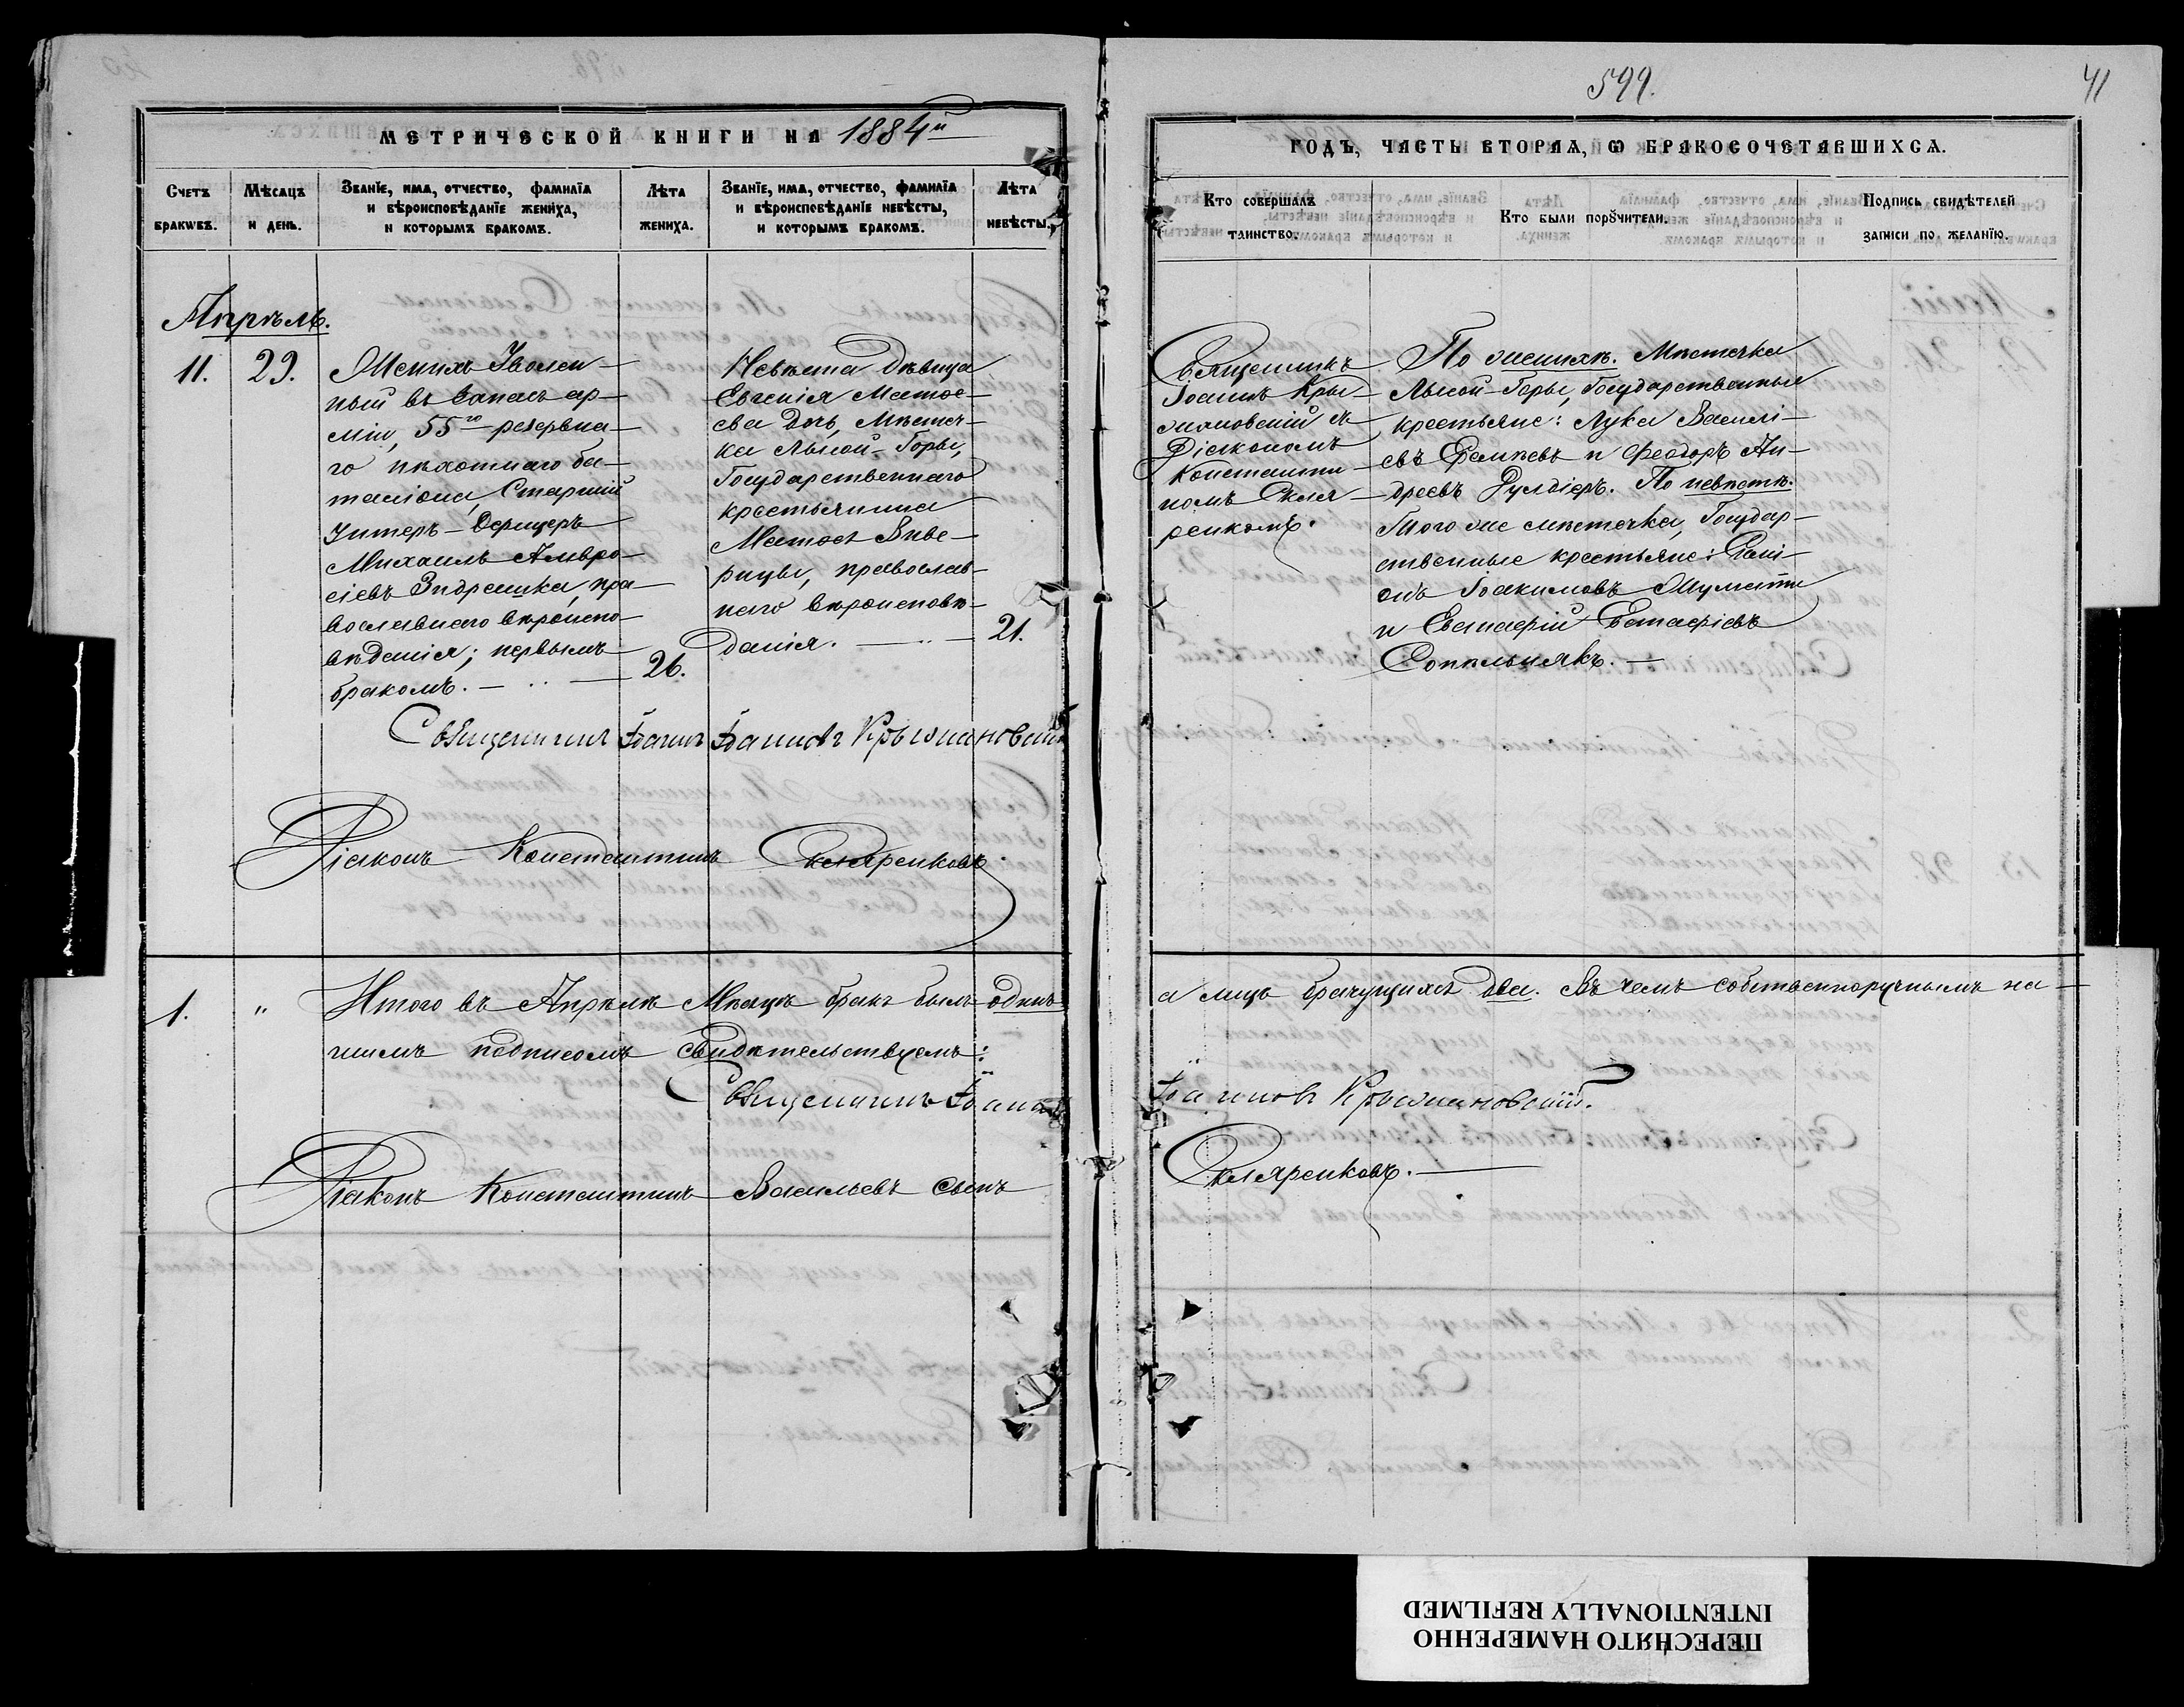 599.
41
МЕТРИЧЕСКОЙ КНИГИ НА 1884й
ГОДЪ, ЧАСТЬ ВТОРАЯ, Ѡ БРАКОСОЧЕТАВШИХСЯ.
Счетъ браковъ.
Мѣсяцъ и день.
Званїе, имя, отчество, фамилїя
и вѣроисповѣданїе жениха,
и которымъ бракомъ.
Лѣта
жениха.
Званїе, имя, отчество, фамилїя
и вѣроисповѣданїе невѣсты,
и которымъ бракомъ.
Лѣта
невѣсты.
Кто совершалъ
таинство.
Кто были порꙋчители.
Подпись свидѣтелей
записи по желанїю.
Апрѣль.
11.
29.
Женихъ Уволен-
ный въ запасъ ар-
міи, 55го резервна-
го пѣхотнаго ба-
таліона, Старшій
Унтеръ-Офицеръ
Михаилъ Амвро-
сіевъ пра-
вославнаго вѣроиспо-
вѣданія; первымъ
бракомъ.
26.
Невѣста дѣвица
Евгенія Матѳе-
ева дочь, Мѣстеч-
ка Лысой-Горы,
Государственнаго
крестьянина
Матѳея Виве-
рицы, православ-
наго вѣроисповѣ-
данія.
21.
Священникъ
Іоаннъ Кры-
жановскій съ
Діакономъ
Константи-
номъ Скля-
ренкомъ.
По женихѣ. Мѣстечка
Лысой-Горы, Государственные
крестьяне: Лука Василі-
евъ и Ѳеодоръ Ан-
дреевъ По невѣстѣ.
Того же мѣстечка, Государ-
ственные крестьяне:
Іоакимовъ
и Евстафій Евстафіевъ
Сопильнякъ.
Священникъ Іоаннъ Іоанновъ Крыжановскій
Діаконъ Константинъ Скляренковъ.
1.
"
Итого въ Апрѣлѣ Мѣсяцѣ бракъ былъ одинъ
а лицъ брачущихся два. Въ чемъ собственноручнымъ на-
шимъ подписомъ свидѣтельствуемъ:
Священникъ Іоаннъ
Іоанновъ Крыжановскій.
Діаконъ Константинъ Васильевъ сынъ
Скляренковъ.
ПЕРЕСНЯТО НАМЕРЕННО
INTENTIONALLY REFILMED